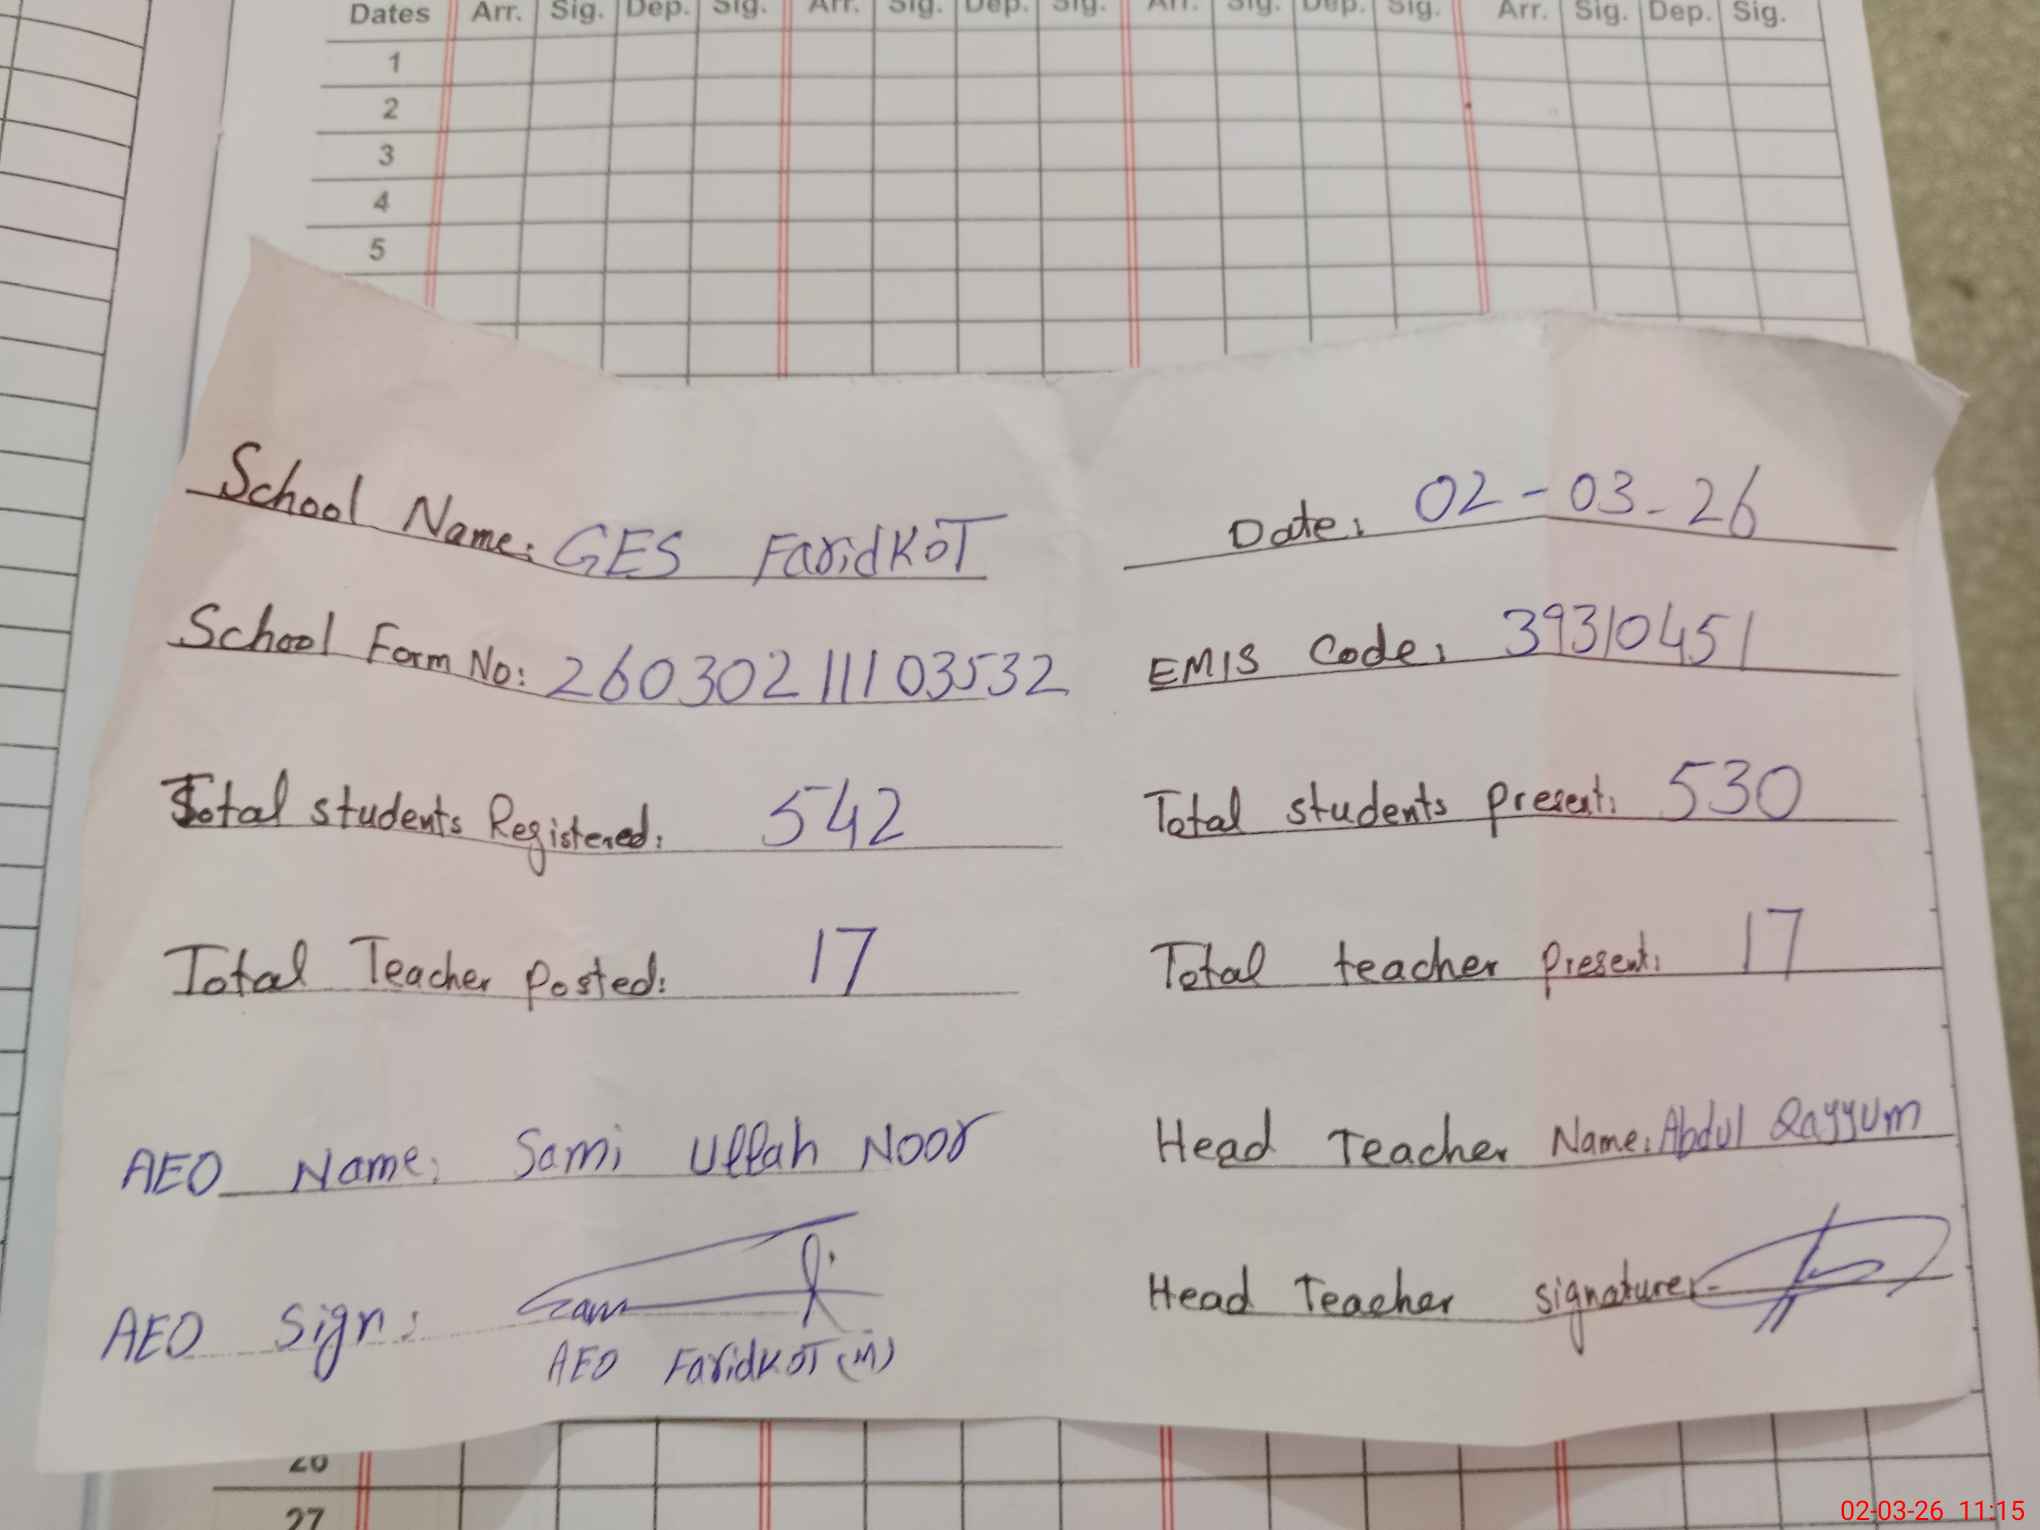 Dates Arr. Sig. Dep. Sig. Arr. Sig. Dep. Sig. Arr. Sig. Dep. Sig. Arr. Sig. Dep. Sig.
1
2
3
4
5
School Name: GES FaridKOT
Date: 02-03-26
School Form No: 26030211103532
EMIS Code: 39310451
Total students Registered: 542
Total students present: 530
Total Teacher posted: 17
Total teacher present: 17
AEO Name: Sami Ullah Noor
Head Teacher Name: Abdul Qayyum
AEO Sign:
AEO FaridKOT (M)
Head Teacher signature:-
26
27
02-03-26 11:15